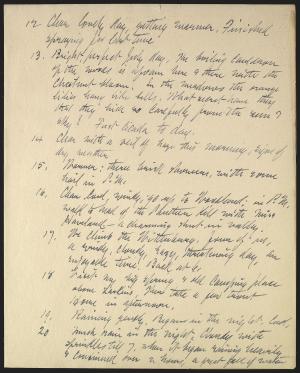 12 Clear lovely day, getting warmer. Finished
spraying for last time.
13. Bright perfect July day. The smiling landscape
of the woods is spoken here & there with the
Chestnut bloom. In the meadows the orange
lilies hang like bells. What secret have they
that they hide so carefully from the sun?
day! First cicada to day.
14 Clear with a veil of haze this morning, signs of
dry weather
15. Warmer; three brief showers, with some
hail in P.M.
16. Clear, cool, windy; go up to Woodland. in P.M.
walk to head of the Panther Kill with Miss
a charming shut-in valley.
17. We climb the Wittenberg, four of us,
a windy, cloudy, hazy, threatening day, an
enjoyable time. Back at 6.
18 Visit my big spring & old camping place
above Larkins. Then take a few trout
Home in afternoon.
19. Raining gently. Began in the night. Cool,
20 much rain in the night; cloudy with
sprinkles till 7, when it began raining heavily
& continued over 2 hours, a great fall of water